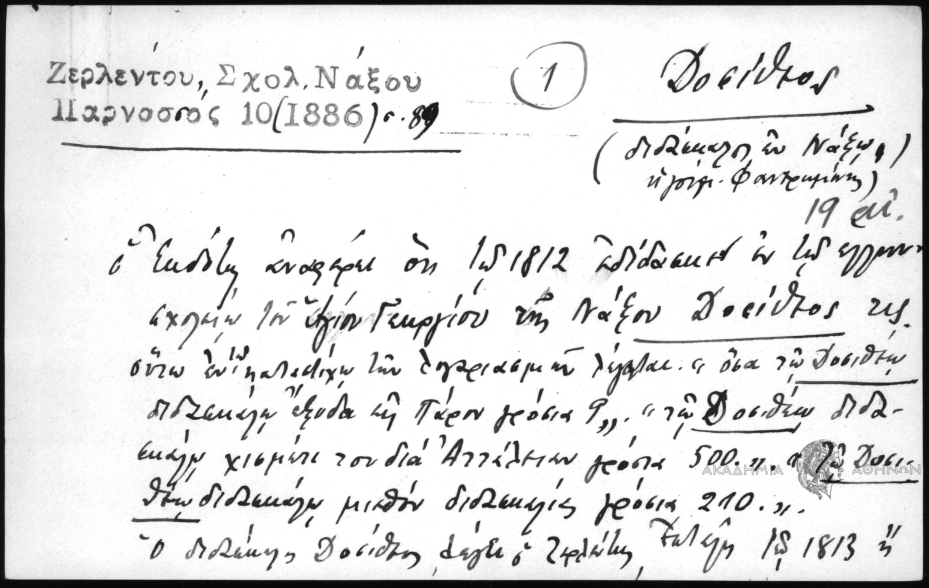 Ζερλέντου, Σχολ. Νάξου
Παρνασσός 10 (1886) σ. 89
1
Δοσίθεος
(διδάσκαλος ἐν Νάξῳ,
ἡγούμ. Φανερωμένης)
19 αἰ.
ὁ Ἐκδότης ἀναφέρει ὅτι τῷ 1812 ἐδίδασκεν ἐν τῷ ἑλλην.
σχολείῳ τοῦ Ἁγίου Γεωργίου τῆς Νάξου Δοσίθεός τις.
οὕτω ἐν τῷ καταστίχῳ τῶν λογαριασμῶν λέγεται. « ὅσα τῷ Δοσιθέῳ
διδασκάλῳ ἔξοδα εἰς Πάρον γρόσια 9„. « τῷ Δοσιθέῳ διδα-
σκάλῳ τοῦ διὰ Ἀττάλειαν γρόσια 500.„. « τῷ Δοσι-
θέῳ διδασκάλῳ μισθὸν διδασκαλίας γρόσια 210.„.
Ὁ διδάσκαλος Δοσίθεος λέγει ὁ Ζερλέντης τῷ 1813 ἢ
ΑΚΑΔΗΜΙΑ ΑΘΗΝΩΝ